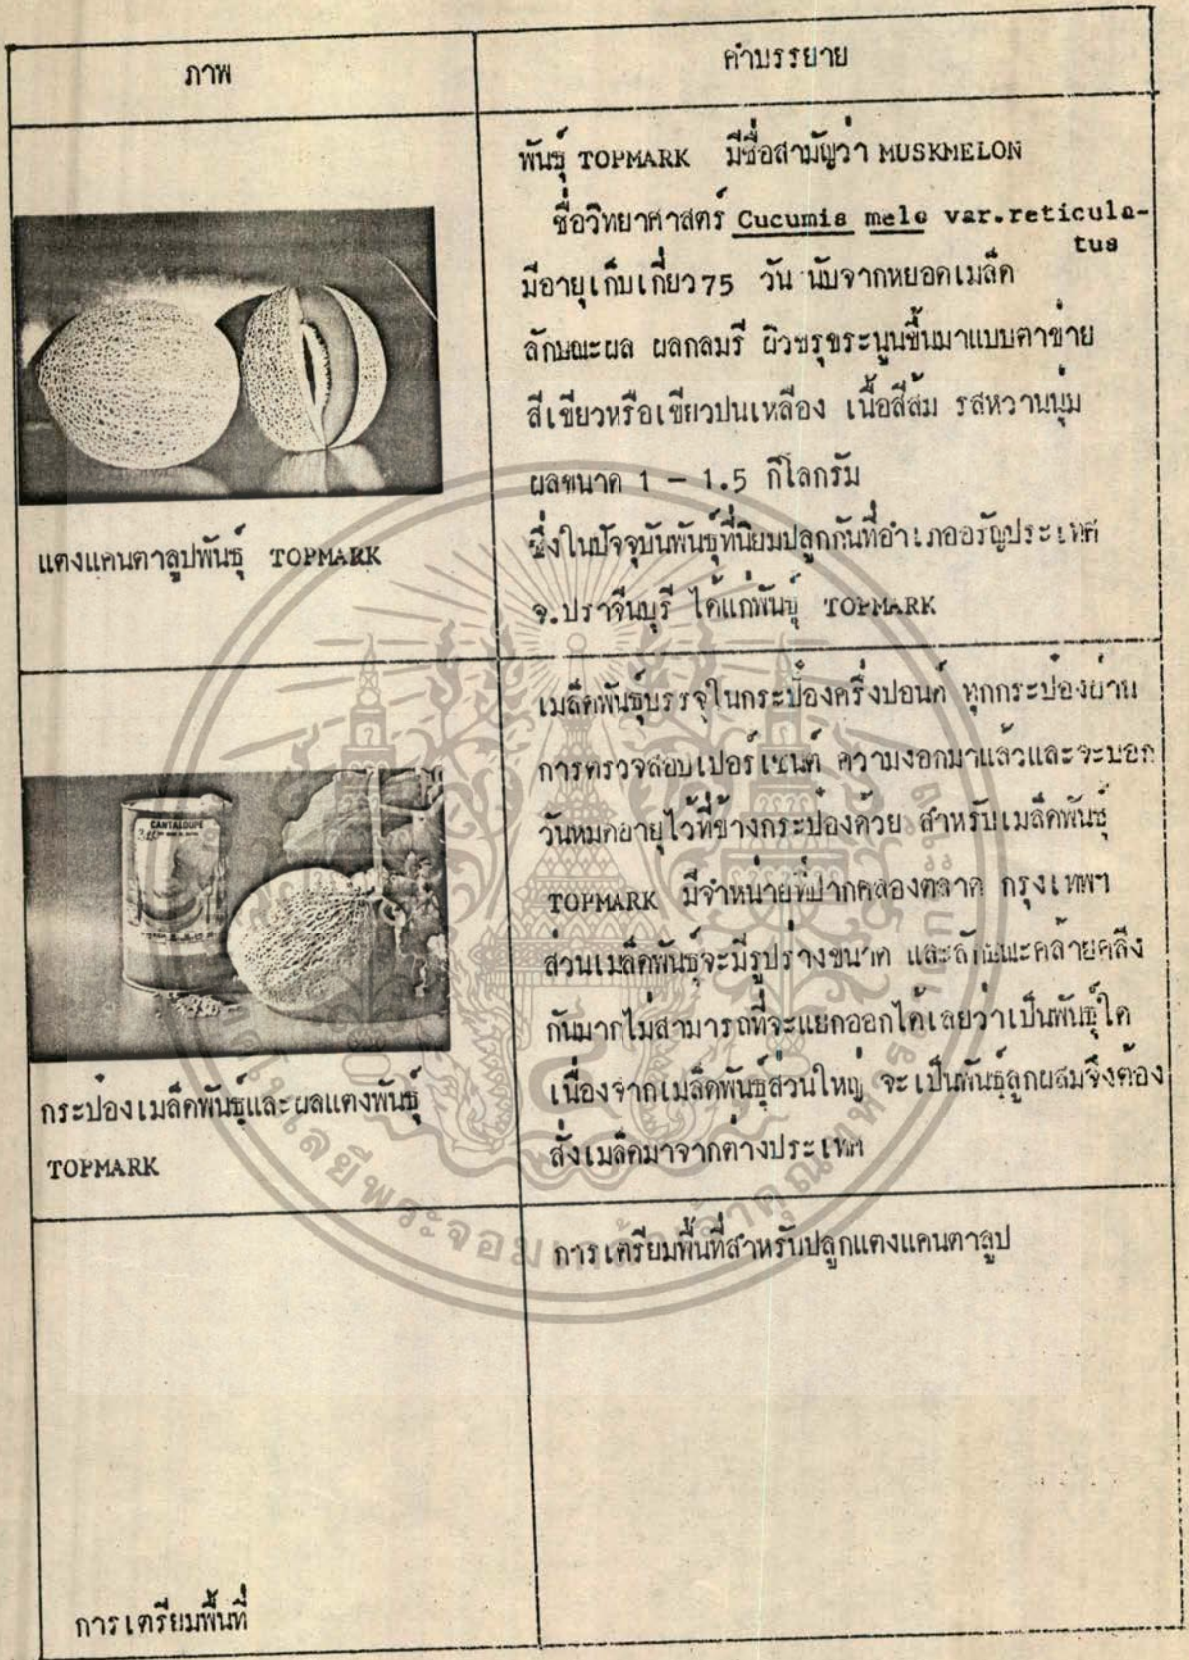 ภาพ
คำบรรยาย
พันธุ์ TOPMARK มีชื่อสามัญว่า MUSKMELON
ชื่อวิทยาศาสตร์ Cucumis melo var.reticula-
tus
มีอายุเก็บเกี่ยว 75 วัน นับจากหยอดเมล็ด
ลักษณะผล ผลกลมรี ผิวขรุขระนูนขึ้นมาแบบตาข่าย
สีเขียวหรือเขียวปนเหลือง เนื้อสีส้ม รสหวานนุ่ม
ผลขนาด 1 - 1.5 กิโลกรัม
ซึ่งในปัจจุบันพันธุ์ที่นิยมปลูกกันที่อำเภออรัญประเทศ
จ.ปราจีนบุรี ได้แก่พันธุ์ TOPMARK
แตงแคนตาลูปพันธุ์ TOPMARK
เมล็ดพันธุ์บรรจุในกระป๋องครึ่งปอนด์ ทุกกระป๋องผ่าน
การตรวจสอบเปอร์เซนต์ ความงอกมาแล้วและจะบอก
วันหมดอายุไว้ที่ข้างกระป๋องด้วย สำหรับเมล็ดพันธุ์
TOPMARK มีจำหน่ายที่ปากคลองตลาด กรุงเทพฯ
ส่วนเมล็ดพันธุ์จะมีรูปร่างขนาด และลักษณะคล้ายคลึง
กันมากไม่สามารถที่จะแยกออกได้เลยว่าเป็นพันธุ์ใด
เนื่องจากเมล็ดพันธุ์ส่วนใหญ่ จะเป็นพันธุ์ลูกผสมจึงต้อง
สั่งเมล็ดมาจากต่างประเทศ
CANTALOUPE
กระป๋องเมล็ดพันธุ์และผลแตงพันธุ์
TOPMARK
การเตรียมพื้นที่สำหรับปลูกแตงแคนตาลูป
การเตรียมพื้นที่